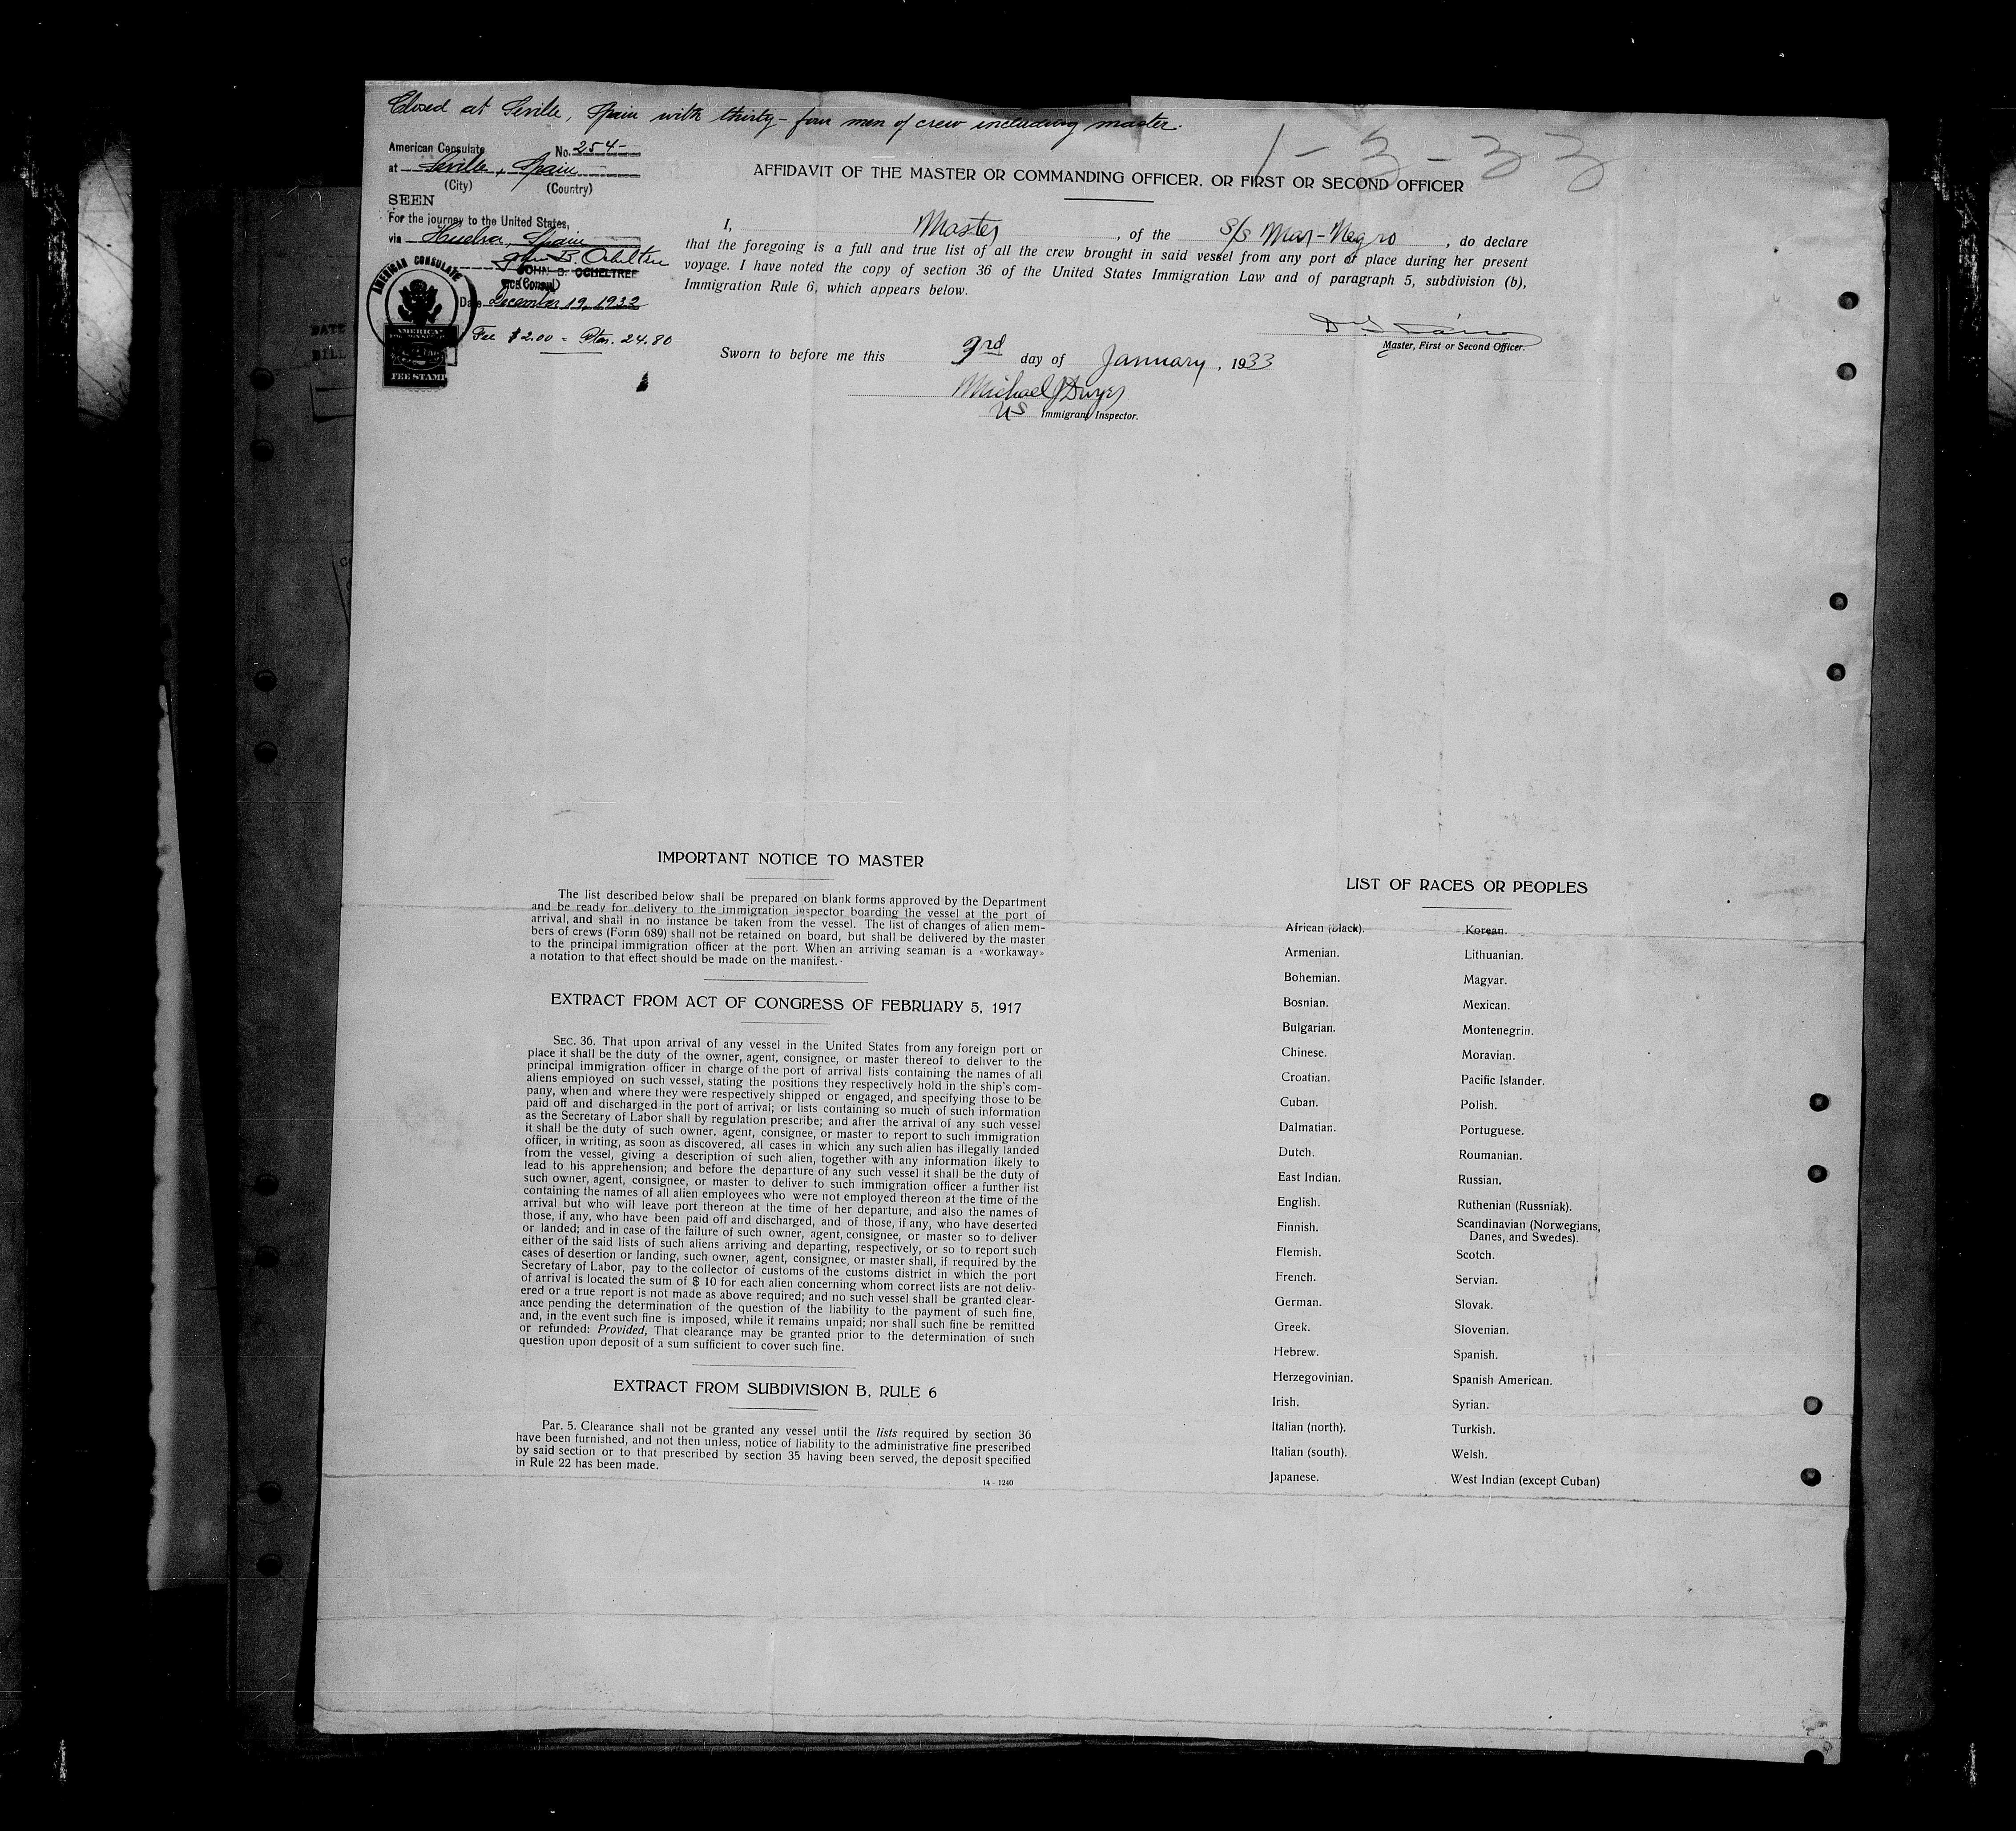 Closed at Seville, Spain with thirty-four men of crew including master.
1-3-33
American Consulate No. 254-
at Seville, Spain
(City) (Country)
SEEN
For the journey to the United States,
via Huelva, Spain
John B. Ocheltree
JOHN B. OCHELTREE
Vice (Consul)
Date December 19, 1932
Fee $2.00 = Ptas. 24.80
AMERICAN CONSULATE
AMERICAN
FEE STAMP
AFFIDAVIT OF THE MASTER OR COMMANDING OFFICER, OR FIRST OR SECOND OFFICER
I, Master, of the S/S Mar-Negro, do declare
that the foregoing is a full and true list of all the crew brought in said vessel from any port or place during her present
voyage. I have noted the copy of section 36 of the United States Immigration Law and of paragraph 5, subdivision (b),
Immigration Rule 6, which appears below.
Master, First or Second Officer.
Sworn to before me this 3rd day of January, 1933
Michael J Dwyer
US Immigrant Inspector.
DATE
BILL
IMPORTANT NOTICE TO MASTER
The list described below shall be prepared on blank forms approved by the Department
and be ready for delivery to the immigration inspector boarding the vessel at the port of
arrival, and shall in no instance be taken from the vessel. The list of changes of alien mem-
bers of crews (Form 689) shall not be retained on board, but shall be delivered by the master
to the principal immigration officer at the port. When an arriving seaman is a «workaway»
a notation to that effect should be made on the manifest.
EXTRACT FROM ACT OF CONGRESS OF FEBRUARY 5, 1917
SEC. 36. That upon arrival of any vessel in the United States from any foreign port or
place it shall be the duty of the owner, agent, consignee, or master thereof to deliver to the
principal immigration officer in charge of the port of arrival lists containing the names of all
aliens employed on such vessel, stating the positions they respectively hold in the ship's com-
pany, when and where they were respectively shipped or engaged, and specifying those to be
paid off and discharged in the port of arrival; or lists containing so much of such information
as the Secretary of Labor shall by regulation prescribe; and after the arrival of any such vessel
it shall be the duty of such owner, agent, consignee, or master to report to such immigration
officer, in writing, as soon as discovered, all cases in which any such alien has illegally landed
from the vessel, giving a description of such alien, together with any information likely to
lead to his apprehension; and before the departure of any such vessel it shall be the duty of
such owner, agent, consignee, or master to deliver to such immigration officer a further list
containing the names of all alien employees who were not employed thereon at the time of the
arrival but who will leave port thereon at the time of her departure, and also the names of
those, if any, who have been paid off and discharged, and of those, if any, who have deserted
or landed; and in case of the failure of such owner, agent, consignee, or master so to deliver
either of the said lists of such aliens arriving and departing, respectively, or so to report such
cases of desertion or landing, such owner, agent, consignee, or master shall, if required by the
Secretary of Labor, pay to the collector of customs of the customs district in which the port
of arrival is located the sum of $ 10 for each alien concerning whom correct lists are not deliv-
ered or a true report is not made as above required; and no such vessel shall be granted clear-
ance pending the determination of the question of the liability to the payment of such fine,
and, in the event such fine is imposed, while it remains unpaid; nor shall such fine be remitted
or refunded: Provided, That clearance may be granted prior to the determination of such
question upon deposit of a sum sufficient to cover such fine.
EXTRACT FROM SUBDIVISION B, RULE 6
Par. 5. Clearance shall not be granted any vessel until the lists required by section 36
have been furnished, and not then unless, notice of liability to the administrative fine prescribed
by said section or to that prescribed by section 35 having been served, the deposit specified
in Rule 22 has been made.
14 - 1240
LIST OF RACES OR PEOPLES
African (black). Korean.
Armenian. Lithuanian.
Bohemian. Magyar.
Bosnian. Mexican.
Bulgarian. Montenegrin.
Chinese. Moravian.
Croatian. Pacific Islander.
Cuban. Polish.
Dalmatian. Portuguese.
Dutch. Roumanian.
East Indian. Russian.
English. Ruthenian (Russniak).
Finnish. Scandinavian (Norwegians,
Danes, and Swedes).
Flemish. Scotch.
French. Servian.
German. Slovak.
Greek. Slovenian.
Hebrew. Spanish.
Herzegovinian. Spanish American.
Irish. Syrian.
Italian (north). Turkish.
Italian (south). Welsh.
Japanese. West Indian (except Cuban)